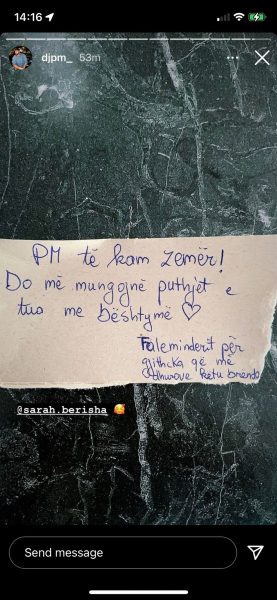 14:16
djpm_ 53m
PM të kam zemër!
Do më mungojnë puthjet e
tua me bështymë ♡
Faleminderit për
gjithcka që më
dhurove ketu brenda
@sarah.berisha 🥰
Send message